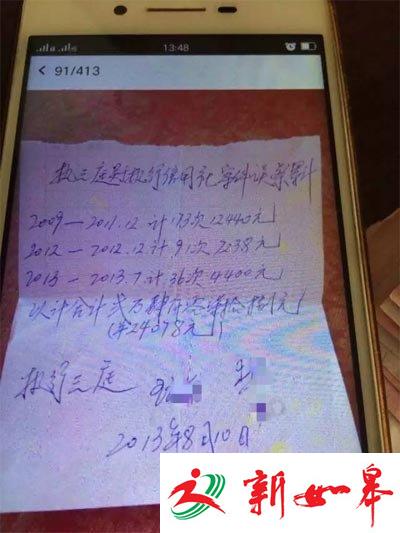 13:48
91/413
执三庭对执行信用社案件误餐累计
2009—2011.12计173次12440元
2012—2012.12计91次7238元
2013—2013.7计36次4400元
以计合计贰万肆仟零柒拾捌元
(¥24078元)
执行三庭
2013年8月10日
新如皋